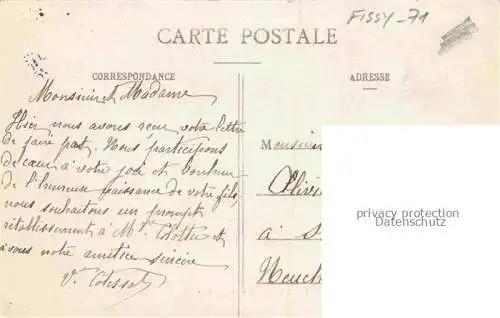 FISSY_71
CARTE POSTALE
CORRESPONDANCE
ADRESSE
Monsieur et Madame
Hier nous avons reçu votre lettre
de faire part, Nous participons
de cœur à votre joie et bonheur
de l'heureuse naissance de votre fils,
nous souhaitons un prompt
rétablissement à Me et
à vous notre amitié sincère
V.
Monsieur
à
privacy protection
Datenschutz